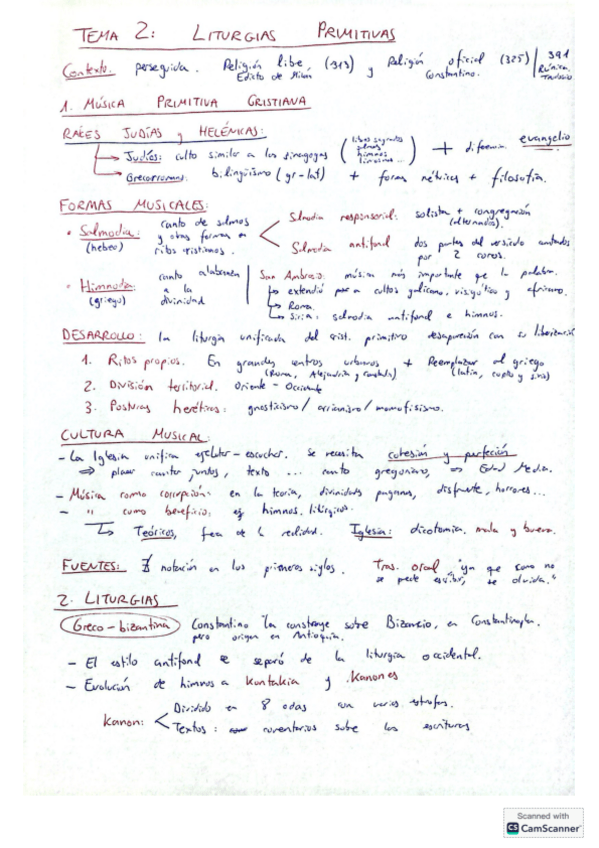 TEMA 2: LITURGIAS PRIMITIVAS
Contexto. perseguida. Religión libre (313) y Religión oficial (325) / 391
Edicto de Milán Constantino.
1. MÚSICA PRIMITIVA CRISTIANA
RAÍCES JUDÍAS y HELÉNICAS:
Judías: culto similar a las sinagogas (libros sagrados salmos himnos ...) + diferencia. evangelio
Grecorromanas: bilingüismo (gr-lat) + forma métrica + filosofía.
FORMAS MUSICALES:
• Salmodia: (hebreo) canto de salmos y otras formas en ritos cristianos.
Salmodia responsorial: solista + congregación (alternados).
Salmodia antifonal dos partes del versículo cantadas por 2 coros.
• Himnodia (griego) canto alabanza a la divinidad
San Ambrosio: música más importante que la palabra.
extendió para cultos galicano, visigótico y africano.
Roma.
Siria: salmodia antifonal e himnos.
DESARROLLO: la liturgia unificada del crist. primitivo desaparición con su liberización
1. Ritos propios. En grandes centros urbanos + Reemplazar al griego
(Roma, Alejandría y (latín, copto y sirio)
2. División territorial. Oriente - Occidente
3. Posturas heréticas: gnosticismo / arrianismo / monofisismo.
CULTURA MUSICAL:
- La Iglesia unifica ejecutar - escuchar. Se necesita cohesión y perfección
⇒ placer cantar juntos, texto ... canto gregoriano, ⇒ Edad Media.
- Música como corrupción: en la teoría, divinidades paganas, disfrute, horrores...
- " como beneficio: ej himnos litúrgicos.
Teóricos, fuera de la realidad. Iglesia: dicotomía. mala y buena.
FUENTES: ∄ notación en los primeros siglos. Tras. oral "ya que como no
se puede escribir, se olvida."
2. LITURGIAS
Greco-bizantina Constantino la construye sobre Bizancio, en Constantinopla.
pero origen en Antioquía.
- El estilo antifonal se separó de la liturgia occidental.
- Evolución de himnos a Kontakia y Kanones
Kanon: Dividido en 8 odas con varias estrofas.
Textos: comentarios sobre las escrituras
Scanned with
CS CamScanner